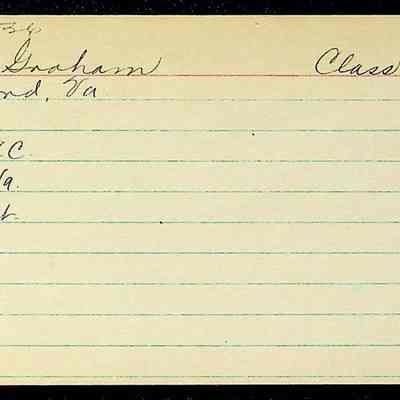 36
Graham Class
nd, Va
C.
a.
t.